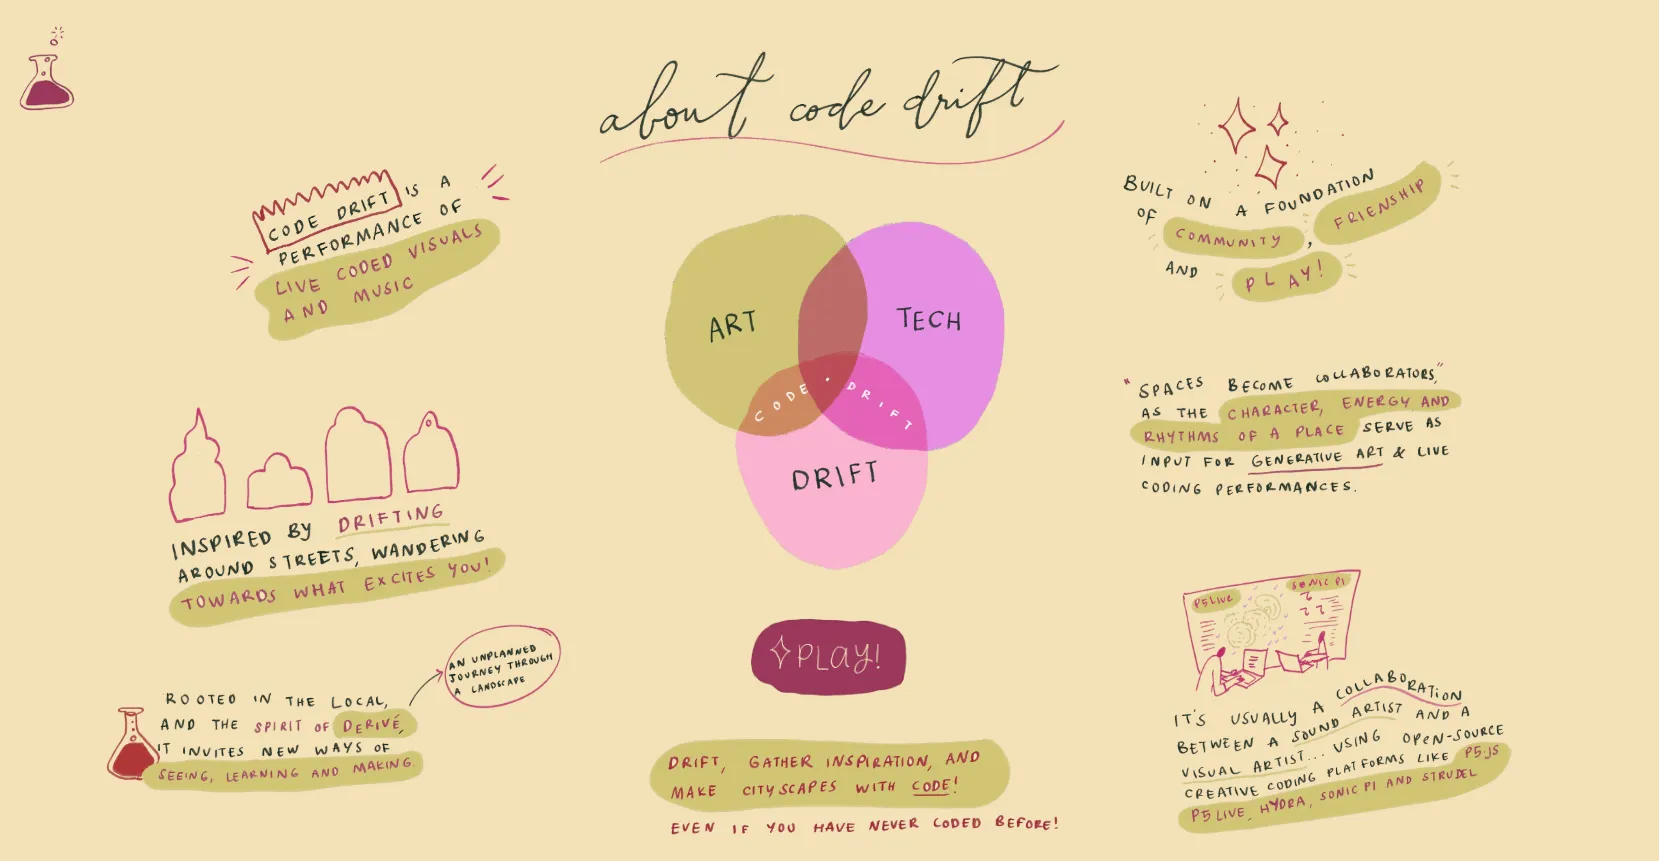 about code drift
CODE DRIFT IS A
PERFORMANCE OF
LIVE CODED VISUALS
AND MUSIC
INSPIRED BY DRIFTING
AROUND STREETS, WANDERING
TOWARDS WHAT EXCITES YOU!
ROOTED IN THE LOCAL,
AND THE SPIRIT OF DERIVÉ,
IT INVITES NEW WAYS OF
SEEING, LEARNING AND MAKING.
AN UNPLANNED
JOURNEY THROUGH
A LANDSCAPE
ART
TECH
CODE • DRIFT
DRIFT
PLAY!
DRIFT, GATHER INSPIRATION, AND
MAKE CITYSCAPES WITH CODE!
EVEN IF YOU HAVE NEVER CODED BEFORE!
BUILT ON A FOUNDATION
OF COMMUNITY, FRIENSHIP
AND PLAY!
"SPACES BECOME COLLABORATORS,"
AS THE CHARACTER, ENERGY AND
RHYTHMS OF A PLACE SERVE AS
INPUT FOR GENERATIVE ART & LIVE
CODING PERFORMANCES.
P5LIVE
SONIC PI
IT'S USUALLY A COLLABORATION
BETWEEN A SOUND ARTIST AND A
VISUAL ARTIST... USING OPEN-SOURCE
CREATIVE CODING PLATFORMS LIKE P5.JS
P5LIVE, HYDRA, SONIC PI AND STRUDEL